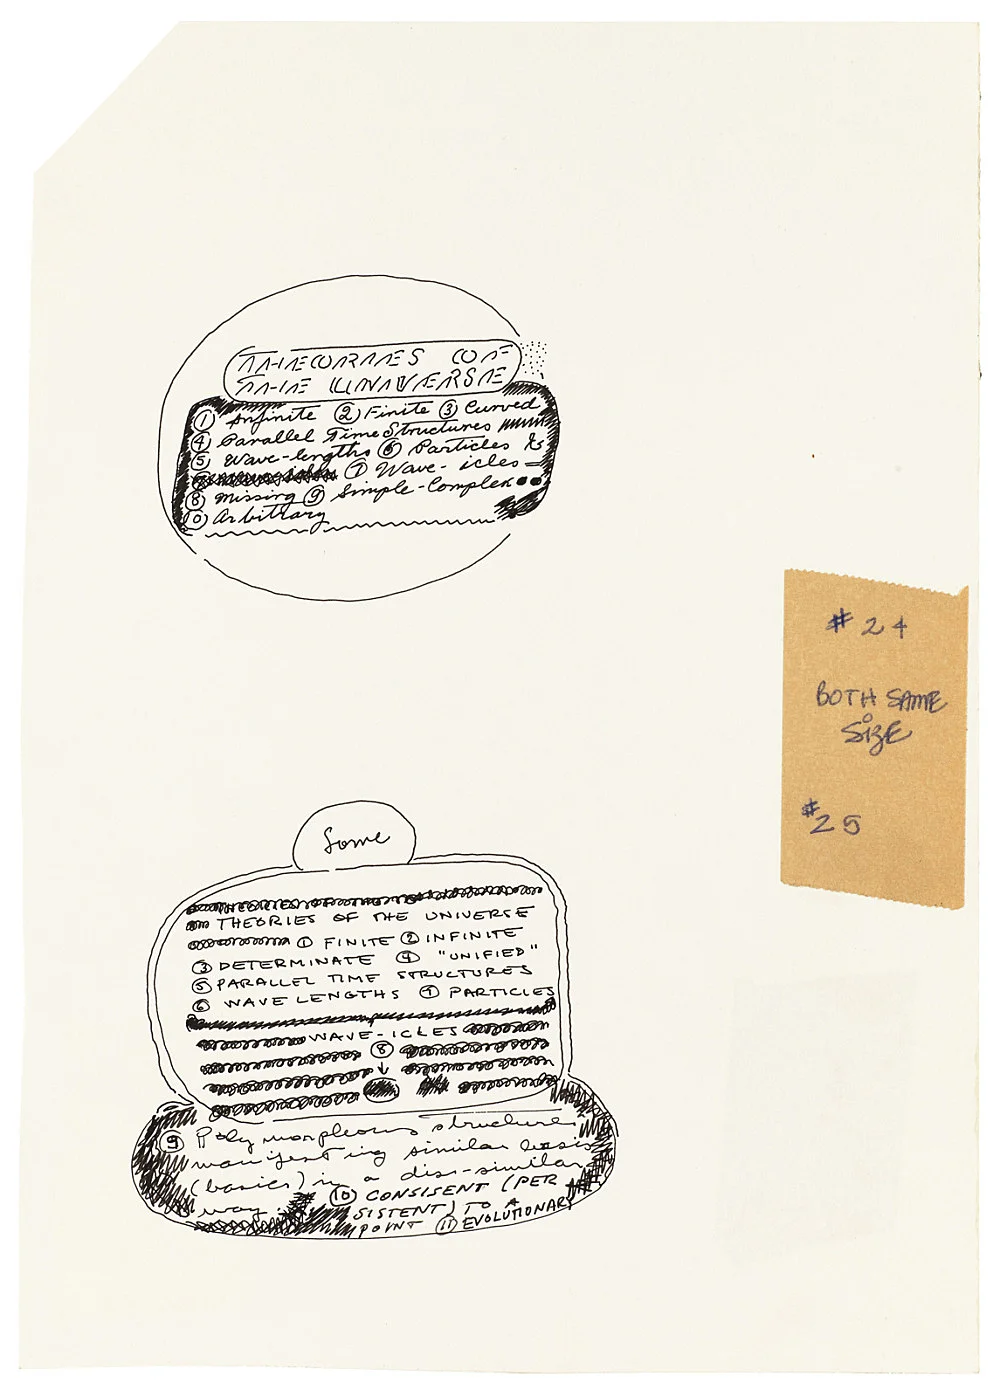 THEORIES OF
THE UNIVERSE
① Infinite ② Finite ③ Curved
④ Parallel Time Structures
⑤ Wave-lengths ⑥ Particles &s
⑦ Wave-icles =
⑧ Missing ⑨ Simple-Complex
⓪ Arbitrary
#24
BOTH SAME
SiZE
#25
Some
THEORIES OF THE UNIVERSE
① FINITE ② INFINITE
③ DETERMINATE ④ "UNIFIED"
⑤ PARALLEL TIME STRUCTURES
⑥ WAVE LENGTHS ⑦ PARTICLES
WAVE-ICLES
⑧
⑨ Polymorpheous structure
manifesting similar basis
(basics) in a dis-similar
way. ⑩ CONSISENT (PER
SISTENT) TO A
POINT ⑪ EVOLUTIONARY